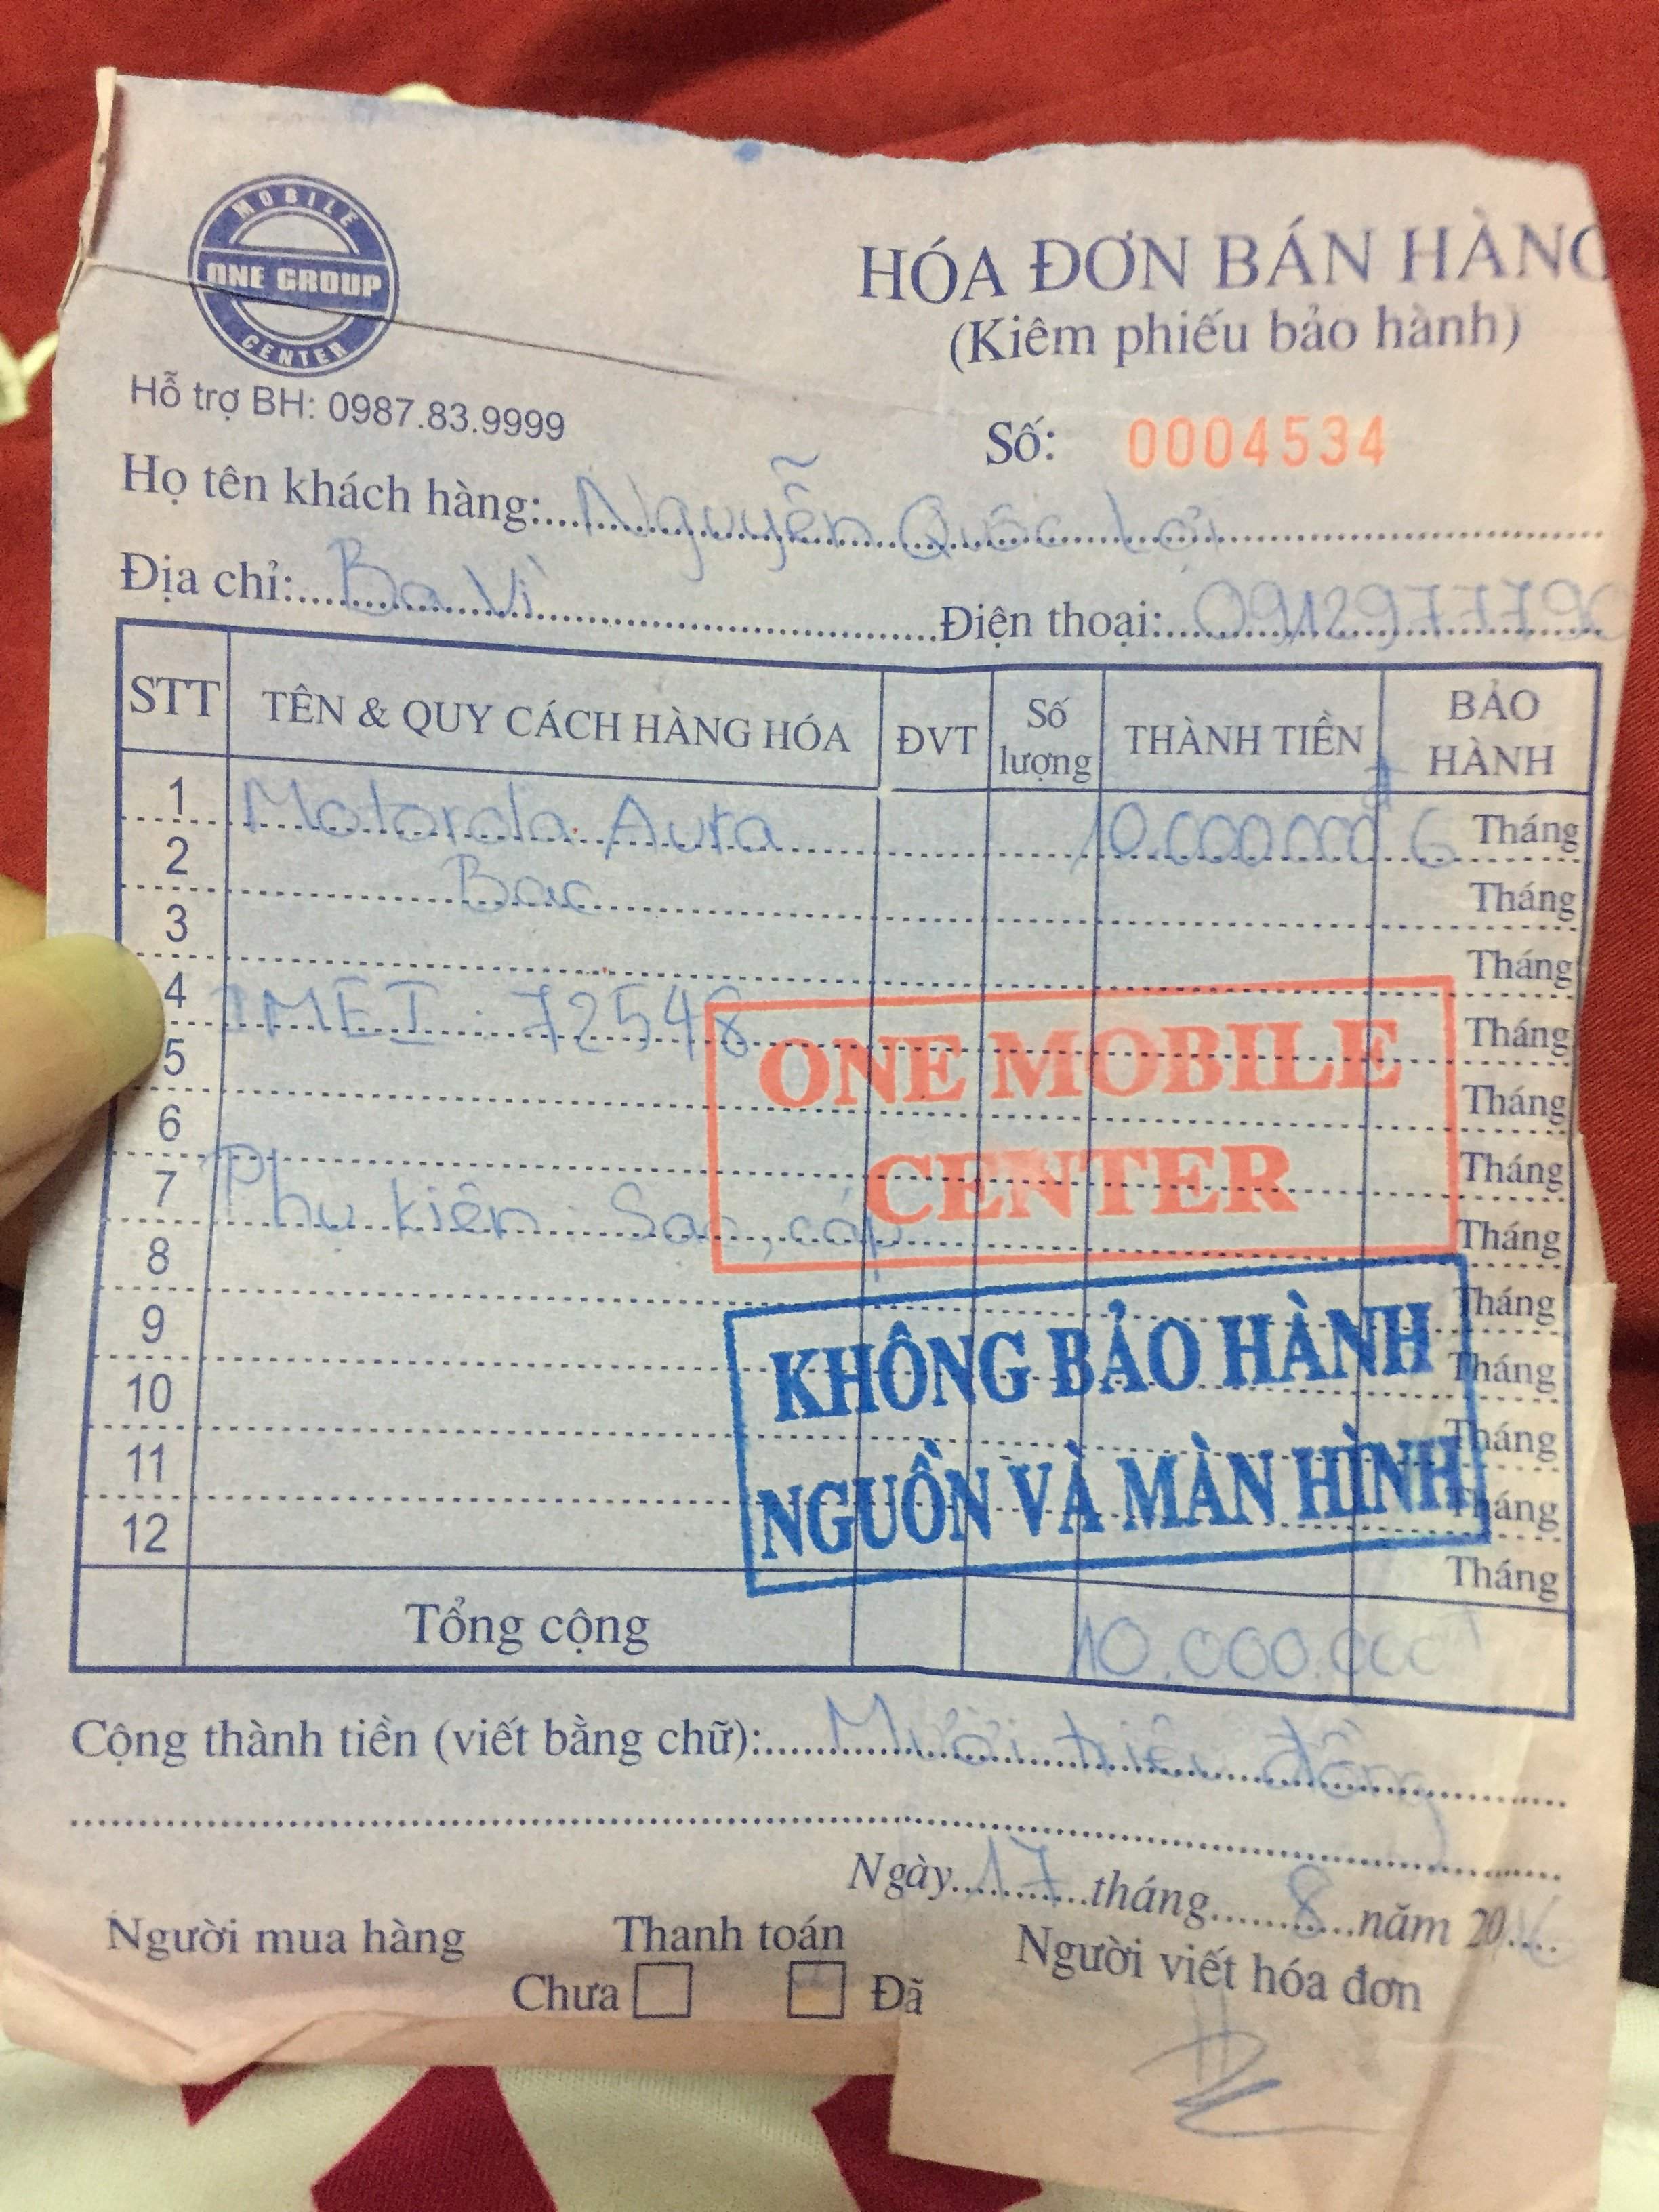 MOBILE
ONE GROUP
CENTER
HÓA ĐƠN BÁN HÀNG
(Kiêm phiếu bảo hành)
Hỗ trợ BH: 0987.83.9999
Số: 0004534
Họ tên khách hàng: Nguyễn Quốc Lợi
Địa chỉ: Ba Vì Điện thoại: 0912977790
STT TÊN & QUY CÁCH HÀNG HÓA ĐVT Số lượng THÀNH TIỀN BẢO HÀNH
1 Motorola Aura 10.000.000đ 6 Tháng
2 Bac Tháng
3 Tháng
4 IMEI: 72548 Tháng
5 Tháng
6 Tháng
7 Phụ kiện: Sac, cáp Tháng
8 Tháng
9 Tháng
10 Tháng
11 Tháng
12 Tháng
ONE MOBILE
CENTER
KHÔNG BẢO HÀNH
NGUỒN VÀ MÀN HÌNH
Tổng cộng 10.000.000
Cộng thành tiền (viết bằng chữ): Mười triệu đồng
Ngày 17 tháng 8 năm 20
Người mua hàng Thanh toán Người viết hóa đơn
Chưa Đã